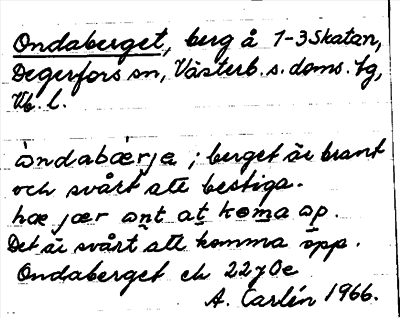 Ondaberget, berg å 1-3 Skatan,
Degerfors sn, Västerb. s. doms. tg,
Vb. l.
ωndabærje ; berget är brant
och svårt att bestiga.
hæ jær ωnt at koma ωp.
Det är svårt att komma öpp.
Ondaberget ek 22 J 0e
A. Carlén 1966.